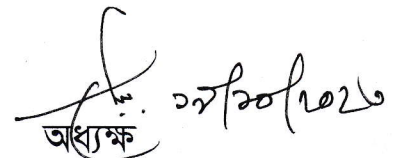 ১৮/১০/২০২৩
অধ্যক্ষ